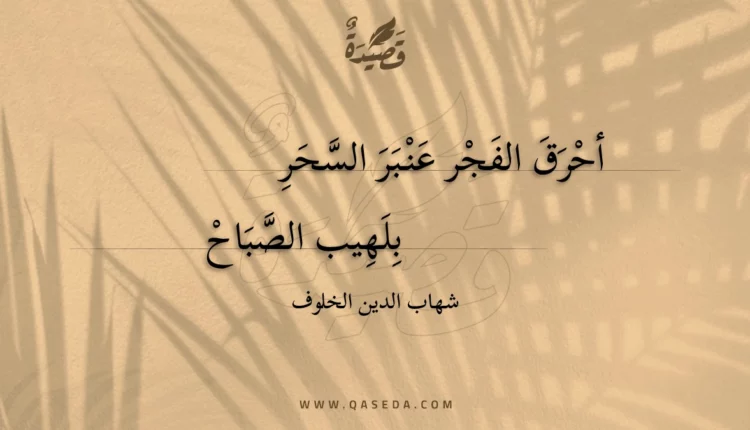 قَصِيدَةٌ
أحْرَقَ الفَجْر عَنْبَرَ السَّحَرِ
بِلَهِيب الصَّبَاحْ
شهاب الدين الخلوف
WWW.QASEDA.COM